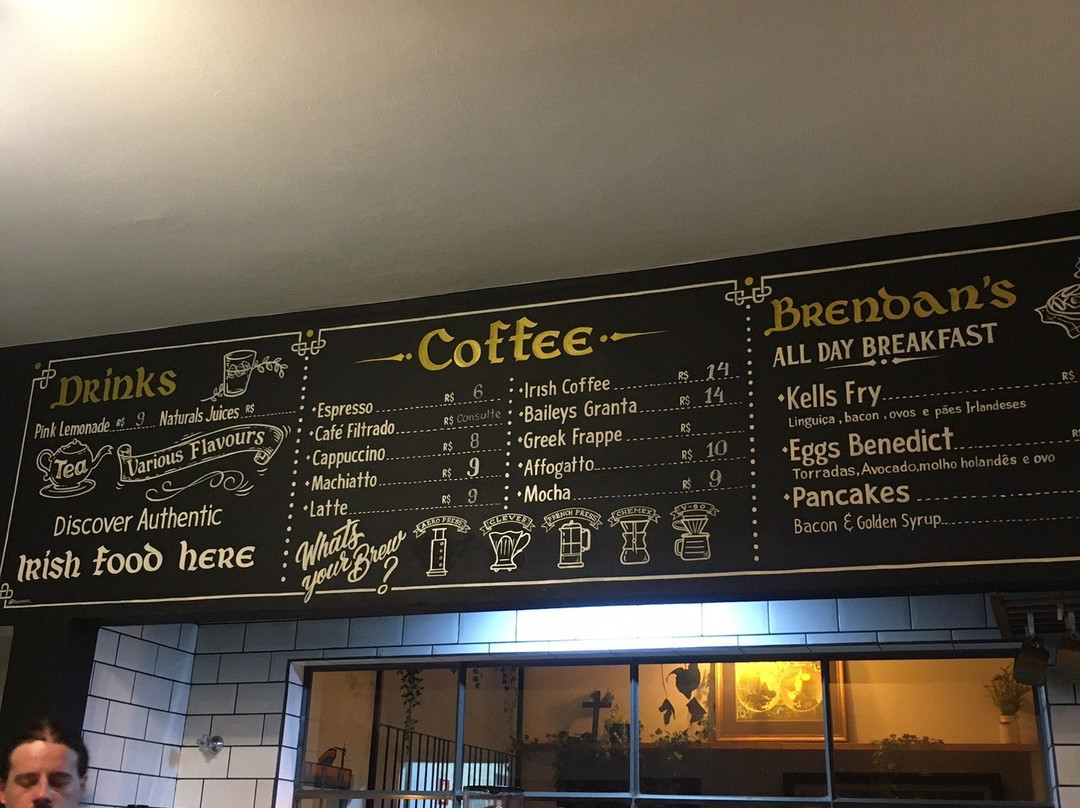 Drinks
Pink Lemonade R$ 9 Naturals Juices R$
Tea
Various Flavours
Discover Authentic
Irish food here
Coffee
Espresso R$ 6
Café Filtrado R$ Consulte
Cappuccino R$ 8
Machiatto R$ 9
Latte R$ 9
Irish Coffee R$ 14
Baileys Granta R$ 14
Greek Frappe R$
Affogatto R$ 10
Mocha R$ 9
Whats
your Brew
?
AERO PRESS
CLEVER
FRENCH PRESS
CHEMEX
V-60
Brendan's
ALL DAY BREAKFAST
Kells Fry R$
Linguica, bacon, ovos e pães Irlandeses
Eggs Benedict R$
Torradas, Avocado, molho holandês e ovo
Pancakes
Bacon & Golden Syrup